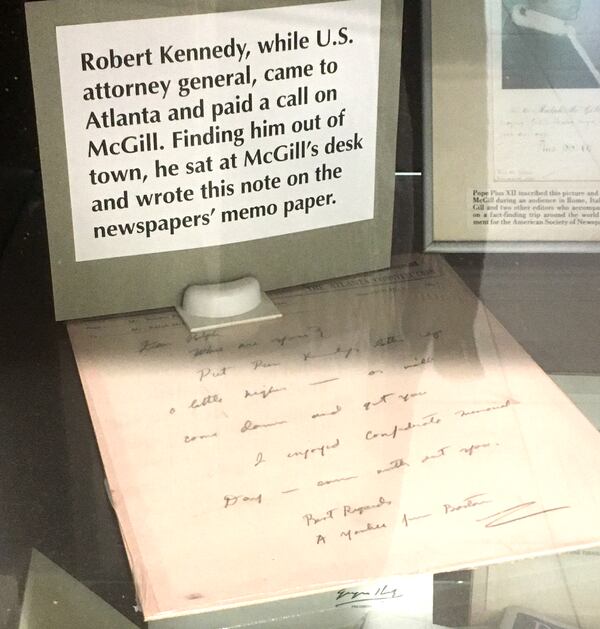 Robert Kennedy, while U.S.
attorney general, came to
Atlanta and paid a call on
McGill. Finding him out of
town, he sat at McGill's desk
and wrote this note on the
newspapers' memo paper.
Pope Pius XII inscribed this picture and
McGill during an audience in Rome, Ital
Gill and two other editors who accompa
on a fact-finding trip around the world
ment for the American Society of Newsp
THE ATLANTA CONSTITUTION
Dear Ralph
Where are you?
Put
a little higher — or
come down and get you
I enjoyed Confederate Memorial
Day — even without you.
Best Regards
A Yankee from Boston